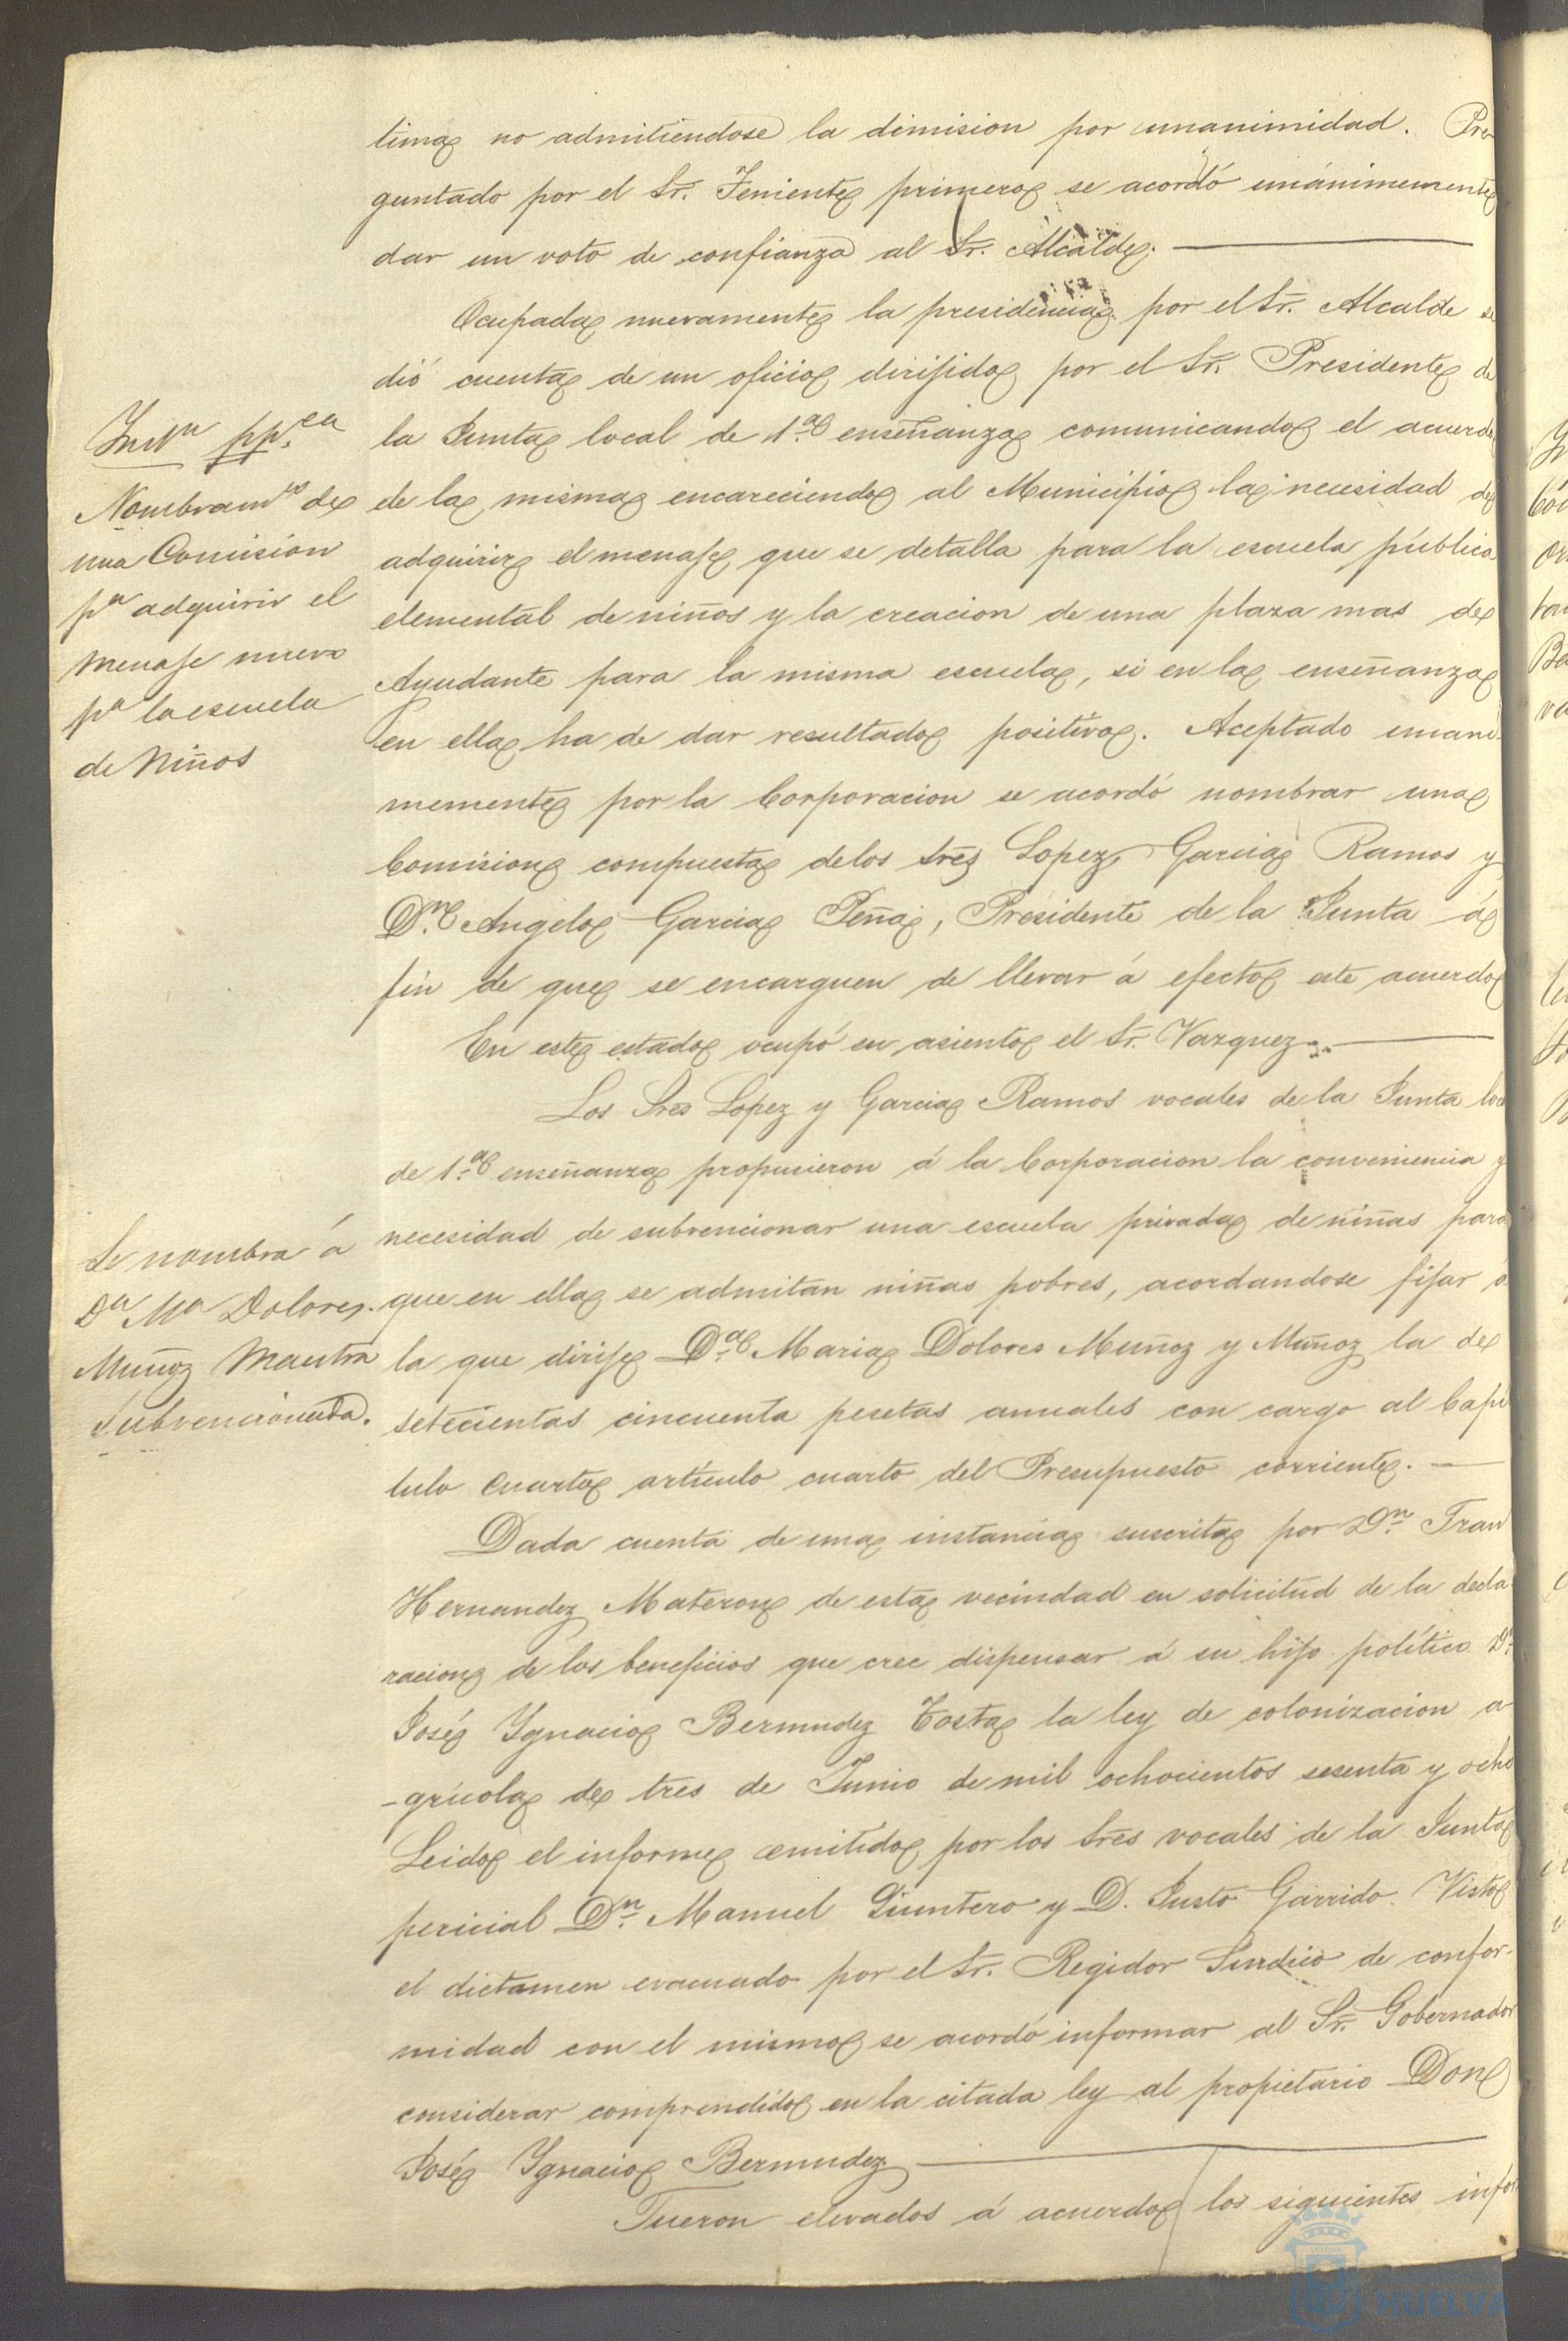 tima no admitiendose la dimision por unanimidad. Pre
guntado por el Sr. Teniente primero se acordó unánimemente
dar un voto de confianza al Sr. Alcalde.
Ocupada nuevamente la presidencia por el Sr. Alcalde se
dió cuenta de un oficio dirijido por el Sr. Presidente de
la Junta local de 1.ª enseñanza comunicando el acuerdo
de la misma encareciendo al Municipio la necesidad de
adquirir el menaje que se detalla para la escuela pública
elemental de niños y la creacion de una plaza mas de
Ayudante para la misma escuela, si en la enseñanza
en ella ha de dar resultado positivo. Aceptado unani
memente por la Corporacion se acordó nombrar una
Comision compuesta de los Sres Lopez, Garcia Ramos y
Dn. Angelo Garcia Peña, Presidente de la Junta á
fin de que se encarguen de llevar á efecto este acuerdo
En este estado ocupó su asiento el Sr. Vazquez.
Los Sres Lopez y Garcia Ramos vocales de la Junta loc
de 1.ª enseñanza propusieron á la Corporacion la conveniencia y
necesidad de subvencionar una escuela privada de niñas para
que en ella se admitan niñas pobres, acordandose fijar a
la que dirije D.ª Maria Dolores Muñoz y Muñoz la de
setecientas cincuenta pesetas anuales con cargo al Capi
tulo cuarto artículo cuarto del Presupuesto corriente.
Dada cuenta de una instancia suscrita por Dn. Fran
Hernandez Materon de esta vecindad en solicitud de la decla
racion de los beneficios que cree dispensar á su hijo político Dn.
José Ygnacio Bermudez Costa la ley de colonizacion a
-grícola de tres de Junio de mil ochocientos sesenta y ocho
Leido el informe emitido por los Sres vocales de la Junta
pericial Dn. Manuel Quintero y D. Justo Garrido. Visto
el dictamen evacuado por el Sr. Regidor Sindico de confor-
midad con el mismo se acordó informar al Sr. Gobernador
considerar comprendido en la citada ley al propietario Don
José Ygnacio Bermudez
Fueron elevados á acuerdo los siguientes infor
Instn ppca
Nombramto de
una Comision
pa adquirir el
menaje nuevo
pa la escuela
de Niños
Se nombra á
Da Ma Dolores
Muñoz Maestra
Subvencionada.
HUELVA